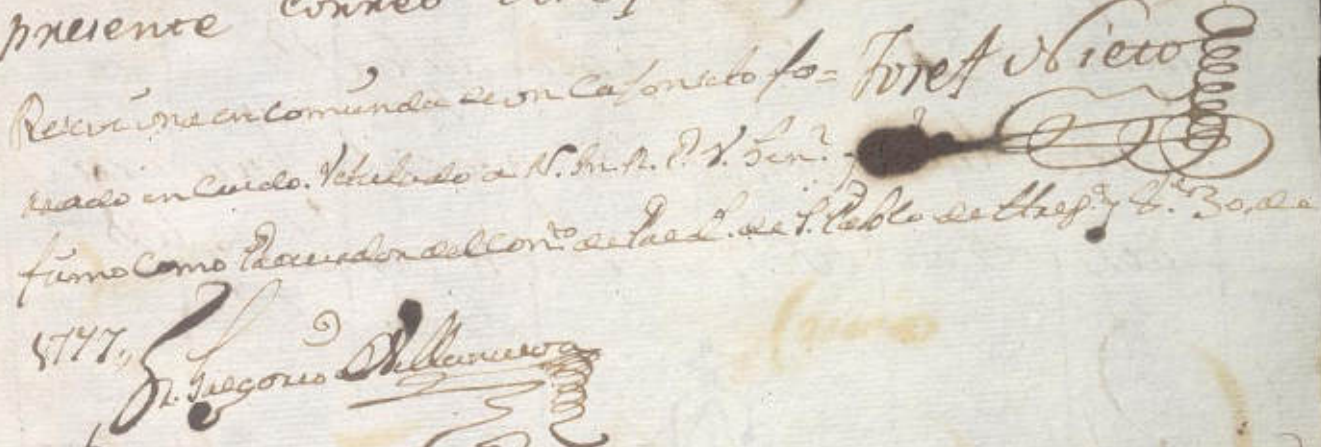 presente Correo
Recivi una encomienda de un Caxonsito fo= Josef Nieto
rrado en Cuero. Rotulado a N. M. R. P. V. Gen.l y
firmo como Procurador del Con.to de de S. Pablo de y 30, de
1777,, Fr. Gregorio Villanueva